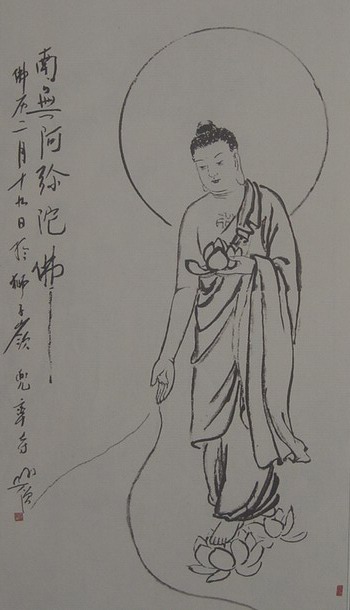 南無阿弥陀佛
佛二月十九日於獅子嶺兜率寺